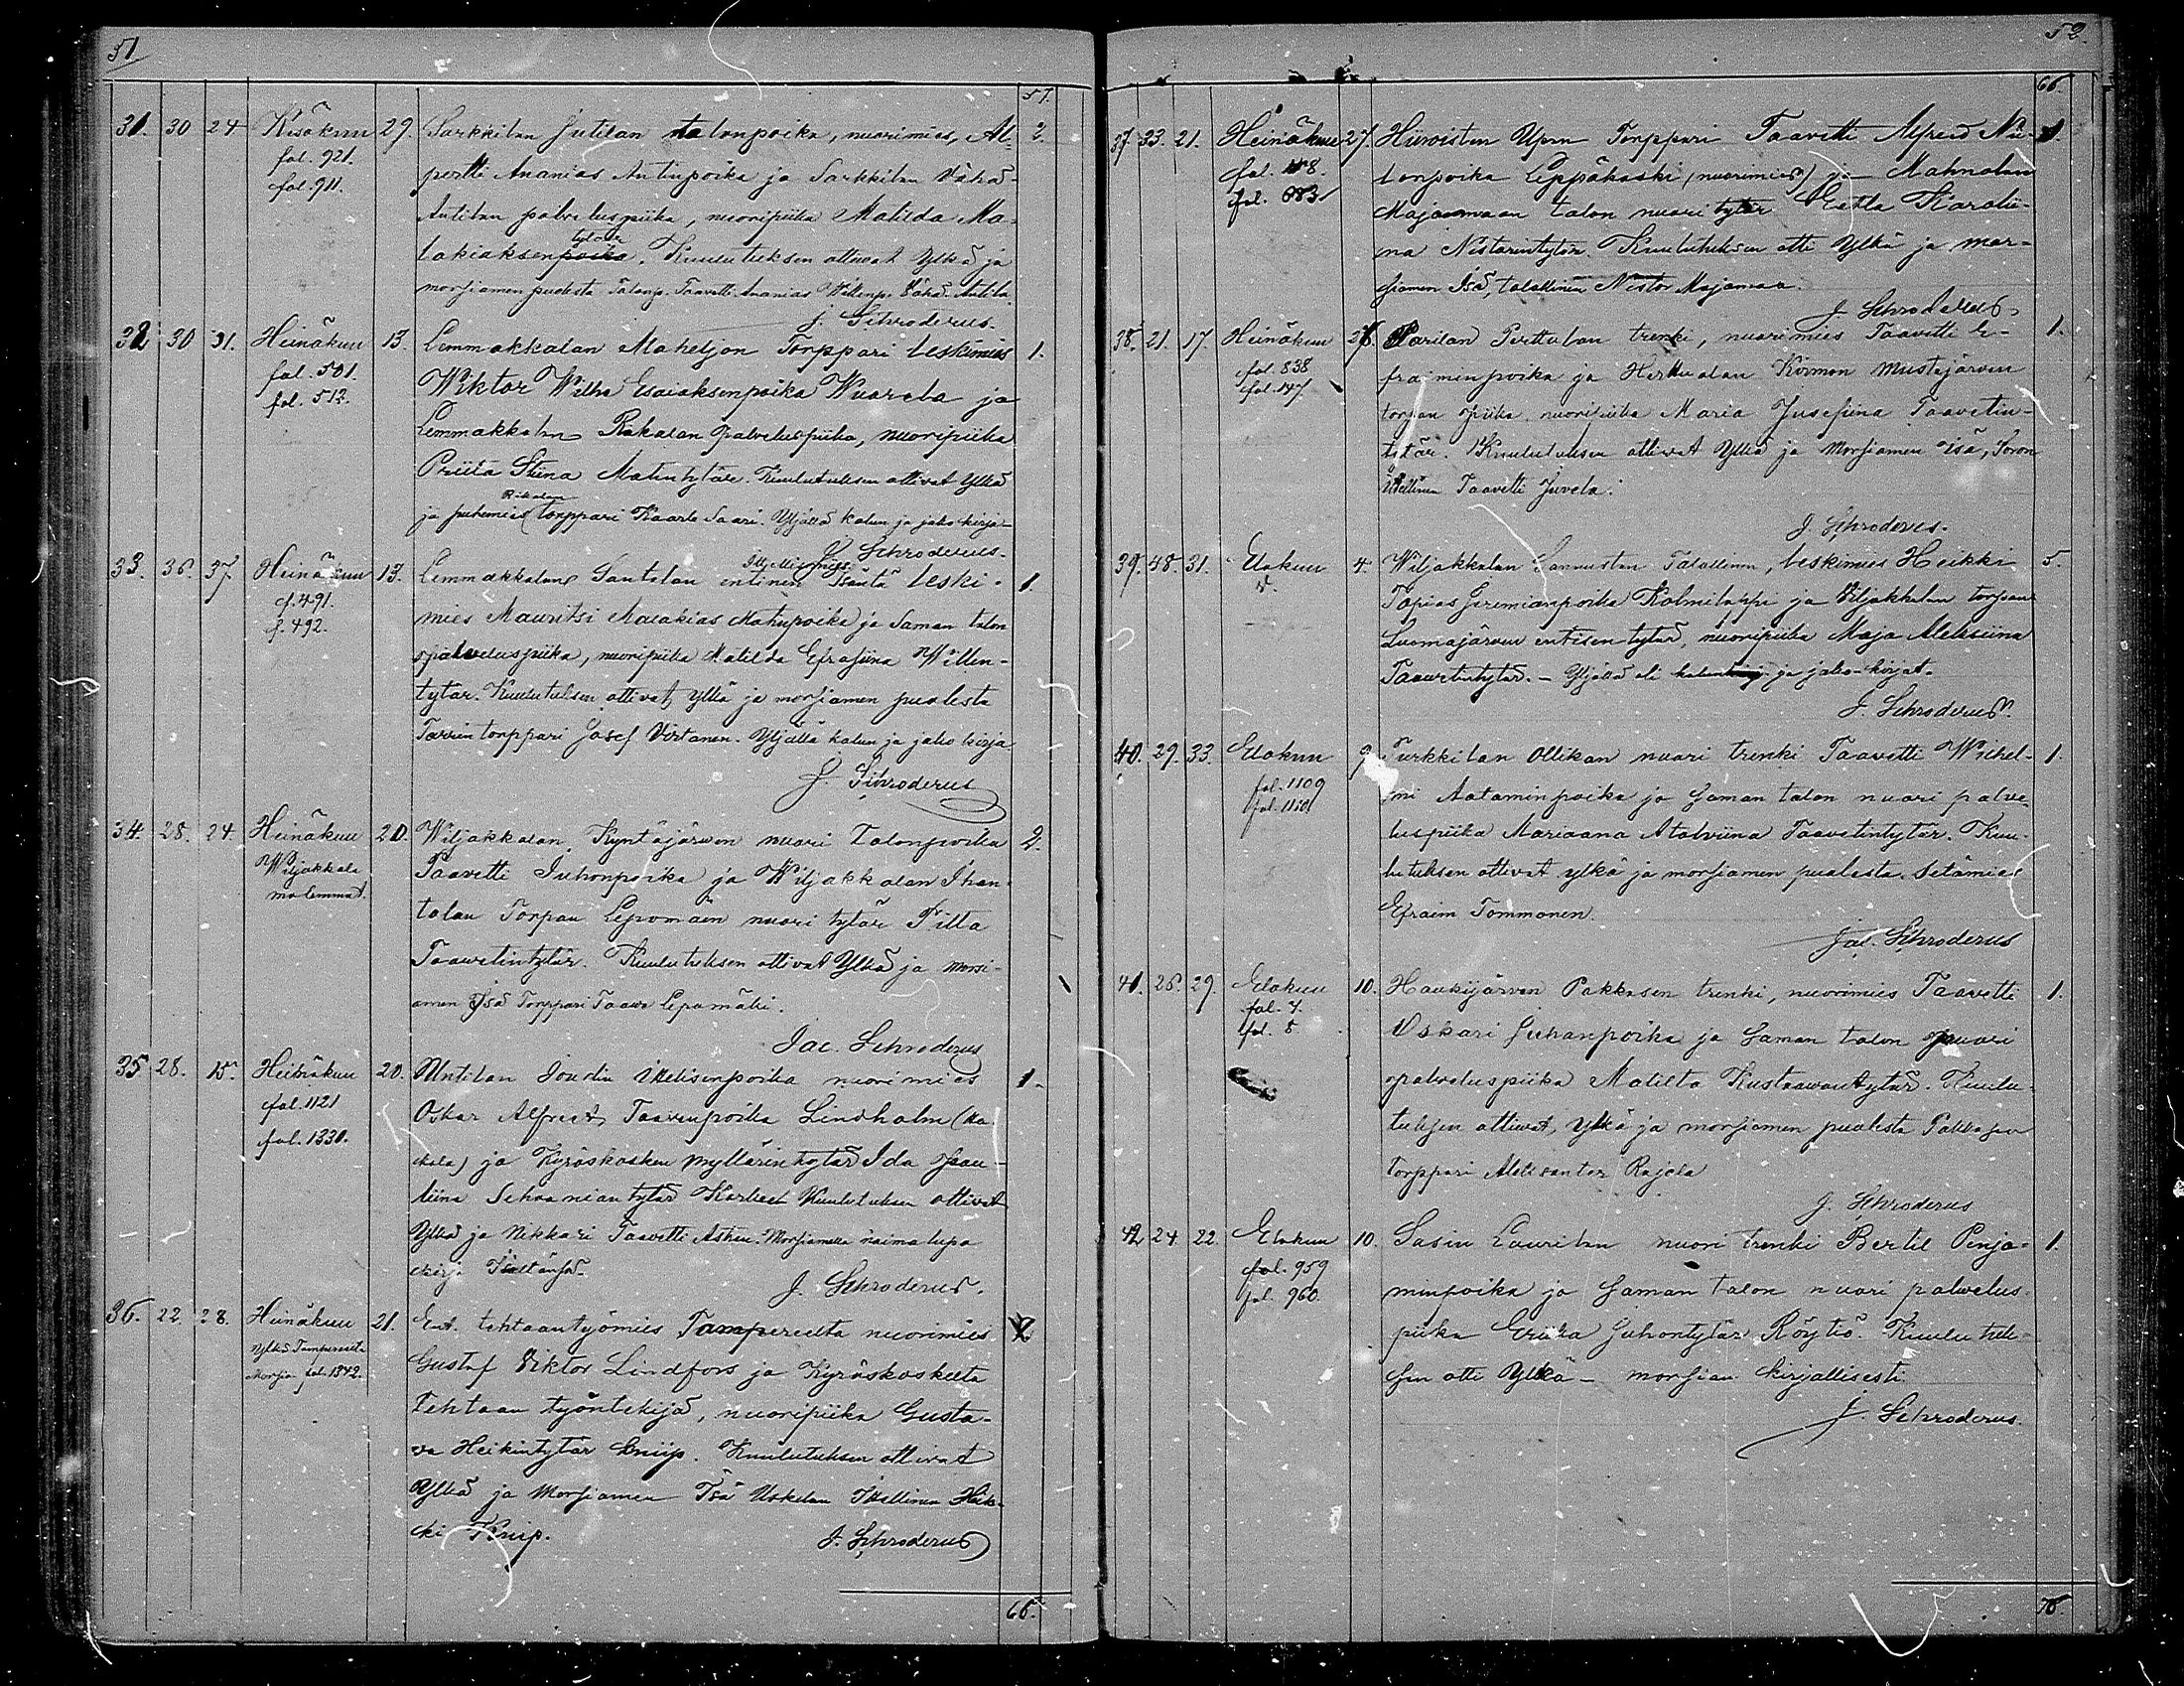 51.
57.
31. 30 24 Kesäkuu 29. Sarkkilan Jutilan talonpoika, nuorimies, Al- 2.
fol. 921. pertti Ananias Antinpoika ja Sarkkilan Vähä-
fol. 911. Antilan palveluspiika, nuoripiika Matilda Ma-
lakiaksenpoika tytär. Kuulutuksen ottivat Ylkä ja
morsiamen puolesta Talonp. Taavetti Ananias Willenp. Vähä-Antila.
J. Schroderus.
32 30 31. Heinäkuu 13. Lemmakkalan Maheljon Torppari leskimies 1.
fol. 501. Wiktor Wilho Esaiaksenpoika Wuorela ja
fol. 512. Lemmakkalan Rakalan palveluspiika, nuoripiika
Priita Stiina Matintytär. Kuulutuksen ottivat Ylkä
ja puhemies Rakalan torppari Kaarle Saari. Yljällä kalun ja jako kirja
J. Schroderus.
33. 36. 37. Heinäkuu 13. Lemmakkalan Santalan entinen Isäntä leski- 1.
f. 491. mies Mauritsi Malakias Matinpoika ja Saman talon
f. 492. palveluspiika, nuoripiika Matilda Efrosiina Willen-
tytär. Kuulutuksen ottivat ylkä ja morsiamen puolesta
torppari Josef Virtanen. Yljällä kalun ja jako kirja
J. Schroderus
34. 28. 24. Heinäkuu 20. Wiljakkalan Kyntäjärwen nuori Talonpoika 2.
Wiljakkala Taavetti Juhonpoika ja Wiljakkalan Ihan-
molemmat. talan Torpan Lepomäen nuori tytär
Taavetintytär. Kuulutuksen ottivat Ylkä ja morsi-
amen Isä Torppari Taave Lepomäki.
Jac. Schroderus
35 28. 15. Heinäkuu 20. Untilan Itellisenpoika nuorimies 1.
fol. 1121 Oskar Alfred Taavenpoika Lindholm
fol. 1330. ja Kyröskosken myllärin tytär Ida
Kuulutuksen ottivat
Ylkä ja Nikkari Taavetti Morsiamella naima lupa
kirja Isältänsä.
J. Schroderus.
36. 22. 28. Heinäkuu 21. Ent. tehtaantyömies Tampereelta nuorimies
Ylkä Tampereelta Gustaf Viktor Lindfors ja Kyröskoskelta
Morsia. fol. 1342. Tehtaan työntekijä, nuoripiika Gusta-
va Heikintytär Kniip. Kuulutuksen ottivat
Ylkä ja Morsiamen Isä Uskelan Itsellinen Heik-
ki Kniip. J. Schroderus
66.
52.
66.
37. 33. 21. Heinäkuu 27. Hirvoisten Upen Torppari Taavetti Alfred 1.
fol. 118. Leppäkoski (nuorimies) ja Mahnalan
fol. 883 Majanmaan talon nuori tytär Eetla Karolii-
na Nestorintytär. Kuulutuksen otti Ylkä ja mor-
siamen Isä, talollinen Nestor Majamaa.
J. Schroderus.
38. 21. 17. Heinäkuu 28. Parilan Perttulan trenki, nuorimies Taavetti E- 1.
fol. 838 fraiminpoika ja Herttualan Koivion Mustajärven
fol. 147. torpan piika, nuoripiika Maria Josefiina Taavetin-
tytär. Kuulutuksen ottivat Ylkä ja Morsiamen Isä,
Itsellinen Taavetti Juvela.
J. Schroderus.
39. 48. 31. Elokuu 4. Wiljakkalan Sannustan Talollinen, leskimies Heikki 5.
V. Topias Jeremianpoika Kolmilahti ja Viljakkalan torpan
Luomajärven entisen tytär, nuoripiika Maja Aleksiina
Taavetintytär. – Yljällä oli kalun ja jako-kirjat.
J. Schroderus.
40. 29. 33. Elokuu 9. Turkkilan Ollikan nuori trenki Taavetti Wilhel- 1.
fol. 1109 mi Aataminpoika ja Saman talon nuori palve-
fol. 1110 luspiika Mariaana Atalviina Taavetintytär. Kuu-
lutuksen ottivat ylkä ja morsiamen puolesta Setämies
Efraim Tommonen.
Jac. Schroderus
41. 26. 29. Elokuu 10. Haukijärven Pakkasen trenki, nuorimies Taavetti 1.
fol. 7. Oskari Juhanpoika ja Saman talon nuori
fol. 8. palveluspiika Matilta Kustaavantytär. Kuulu-
tuksen ottivat, Ylkä ja morsiamen puolesta Pakkasen
torppari Aleksanter Rajala
J. Schroderus
42 24 22. Elokuu 10. Sasin Laurilan nuori trenki Bertil Penja- 1.
fol. 959 minpoika ja Saman talon nuori palvelus-
fol. 960. piika Eriika Juhontytär Röytiö. Kuulutuk-
sen otti Ylkä – morsian kirjallisesti.
J. Schroderus.
76.